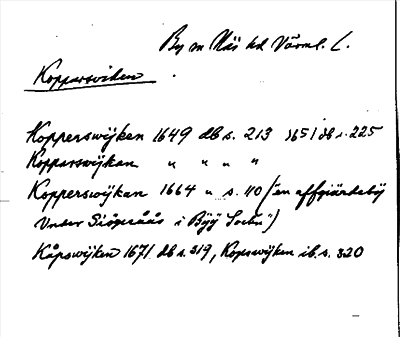 By m Näs hd Värml. L.
Kopparsviken
Kopperswijken 1649 db s. 213 1651 db s. 225
Kopparswijkan " " " "
Kopperswijkan 1664 " s. 110 ("en affgiärdaby
Under Siögeråås i Byÿ Sochn")
Kåpswijken 1671 db s. 319, Kopswijken ib. s. 320